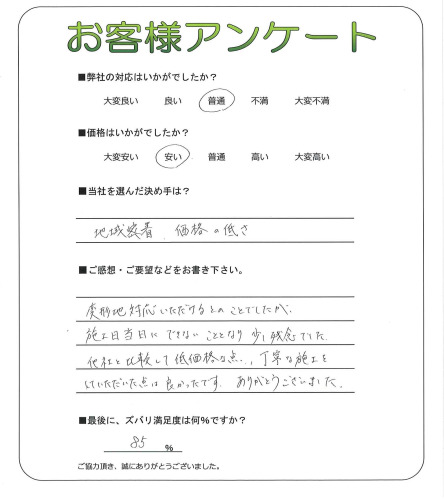 お客様アンケート
■弊社の対応はいかがでしたか?
大変良い 良い 普通 不満 大変不満
■価格はいかがでしたか?
大変安い 安い 普通 高い 大変高い
■当社を選んだ決め手は?
地域密着、価格の低さ
■ご感想・ご要望などをお書き下さい。
変形地対応いただけるとのことでしたが、
施工日当日にできないこととなり少し残念でした。
他社と比較して低価格な点、丁寧な施工を
していただいた点は良かったです。ありがとうございました。
■最後に、ズバリ満足度は何%ですか?
85 %
ご協力頂き、誠にありがとうございました。